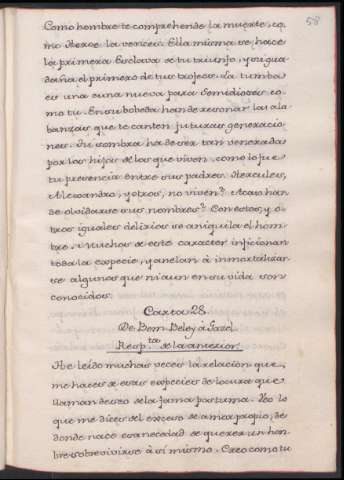 58
Como hombre te comprehende la muerte, co-
mo Heroe la vences. Ella misma se hace
la primera Esclava de tu triunfo, y su gua-
daña el primero de tus trofeos. La tumba
es una cuna nueva para Semidioses co-
mo tu. En su boveda han de resonar las ala-
banzas que te canten futuras generacio-
nes. Tu sombra há de ser tan venerada
por los hijos de los que viven, como lo fue
tu presencia entre sus padres. Hercules,
Alexandro, y otros, no viven? Acaso han
de olvidarse sus nombres? Con estos, y o-
tros iguales delirios se aniquila el hom-
bre. Muchos de este caracter inficionan
toda la especie, y anelan á inmortalizar-
se algunos que ni aun en su vida son
conocidos.
Carta 28.
De Ben-Beley á Gazel
Resp.ta de la anterior.
He leído muchas veces la relacion que
me haces de esas especies de locura que
llaman deseo de la fama postuma. Veo lo
que me dices del exceso de amor propio, de
donde nace esa necedad de querer un hom-
bre sobrevivirse á sí mismo. Creo como tu